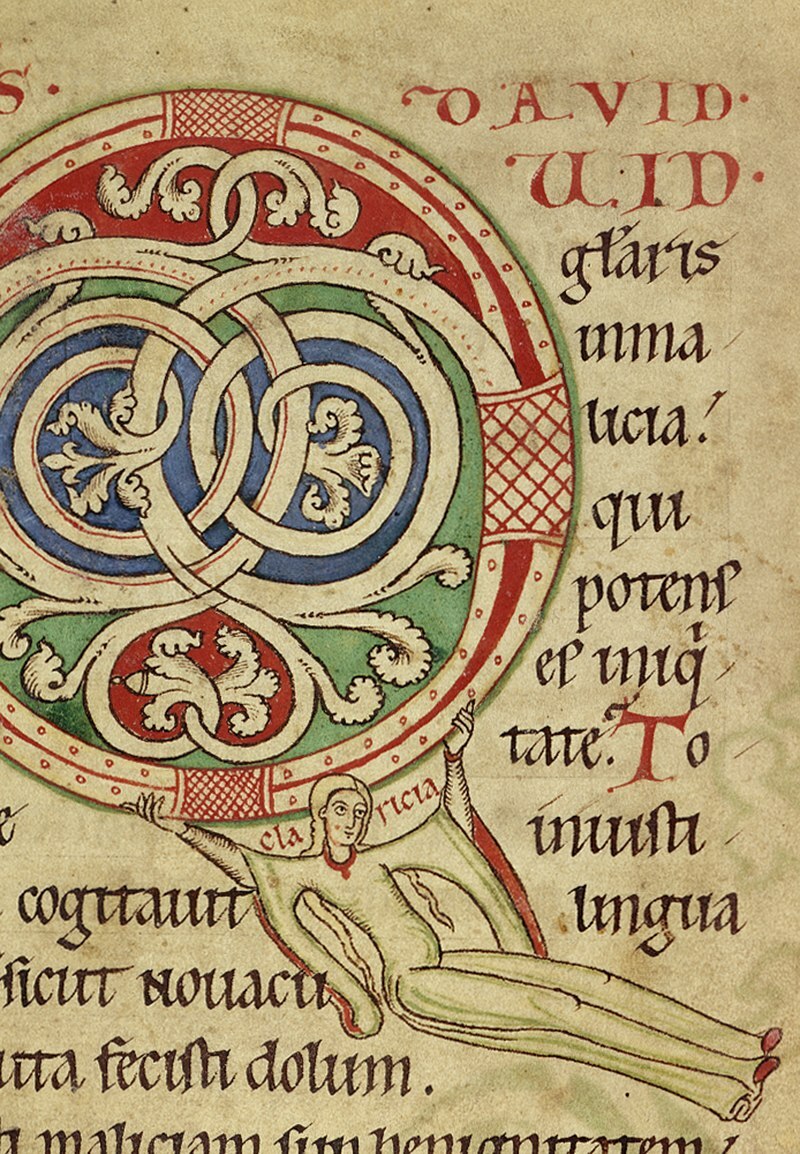 S. DAVID.
UID.
gl̄aris
inma
licia?
qui
potens
es iniq̇
tate. To
cla ricia
iniusti
lingua
cogitauit
sicut nouacu
fecisti dolum.
maliciam sup benignitatem